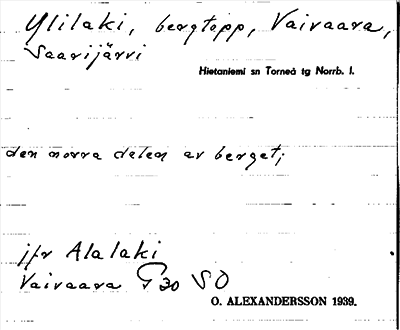 Ylilaki, bergtopp, Vaivaara,
Saarijärvi
Hietaniemi sn Torneå tg Norrb. l.
den norra delen av berget;
jfr Alalaki
Vaivaara G 30 SO
O. ALEXANDERSSON 1939.